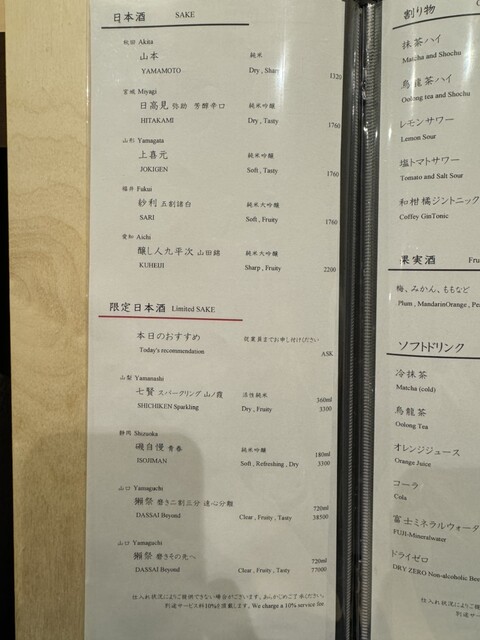 日本酒 SAKE
秋田 Akita
山本 純米
YAMAMOTO Dry , Sharp
1320
宮城 Miyagi
日高見 弥助 芳醇辛口 純米吟醸
HITAKAMI Dry , Tasty
1760
山形 Yamagata
上喜元 純米吟醸
JOKIGEN Soft , Tasty
1760
福井 Fukui
紗利 五割諸白 純米大吟醸
SARI Soft , Fruity
1760
愛知 Aichi
醸し人九平次 山田錦 純米大吟醸
KUHEIJI Sharp , Fruity
2200
限定日本酒 Limited SAKE
本日のおすすめ 従業員までお申し付けください
Today's recommendation
ASK
山梨 Yamanashi
七賢 スパークリング 山ノ霞 活性純米
360ml
SHICHIKEN Sparkling Dry , Fruity 3300
静岡 Shizuoka
磯自慢 青春 純米吟醸
180ml
ISOJIMAN Soft , Refreshing , Dry 3300
山口 Yamaguchi
獺祭 磨き二割三分 遠心分離
720ml
DASSAI Beyond Clear , Fruity , Tasty 38500
山口 Yamaguchi
獺祭 磨きその先へ
720ml
DASSAI Beyond Clear , Fruity , Tasty 77000
仕入れ状況によりご提供できない場合がございます。あらかじめご了承ください。
別途サービス料10%を頂戴します。We charge a 10% service fee
割り物
抹茶ハイ
Matcha and Shochu
烏龍茶ハイ
Oolong tea and Shochu
レモンサワー
Lemon Sour
塩トマトサワー
Tomato and Salt Sour
和柑橘ジントニック
Coffey GinTonic
果実酒 Fru
梅、みかん、ももなど
Plum , MandarinOrange , Pe
ソフトドリンク
冷抹茶
Matcha (cold)
烏龍茶
Oolong Tea
オレンジジュース
Orange Juice
コーラ
Cola
富士ミネラルウォータ
FUJI-Mineralwater
ドライゼロ
DRY ZERO Non-alcoholic Bee
仕入れ状況によりご
別途サービス